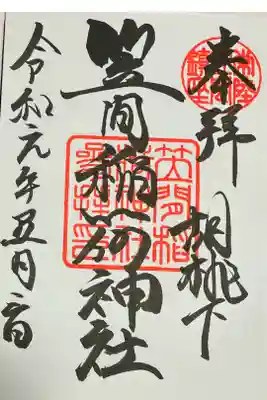 奉拝 胡桃下
笠間稲荷神社
令和元年五月二日